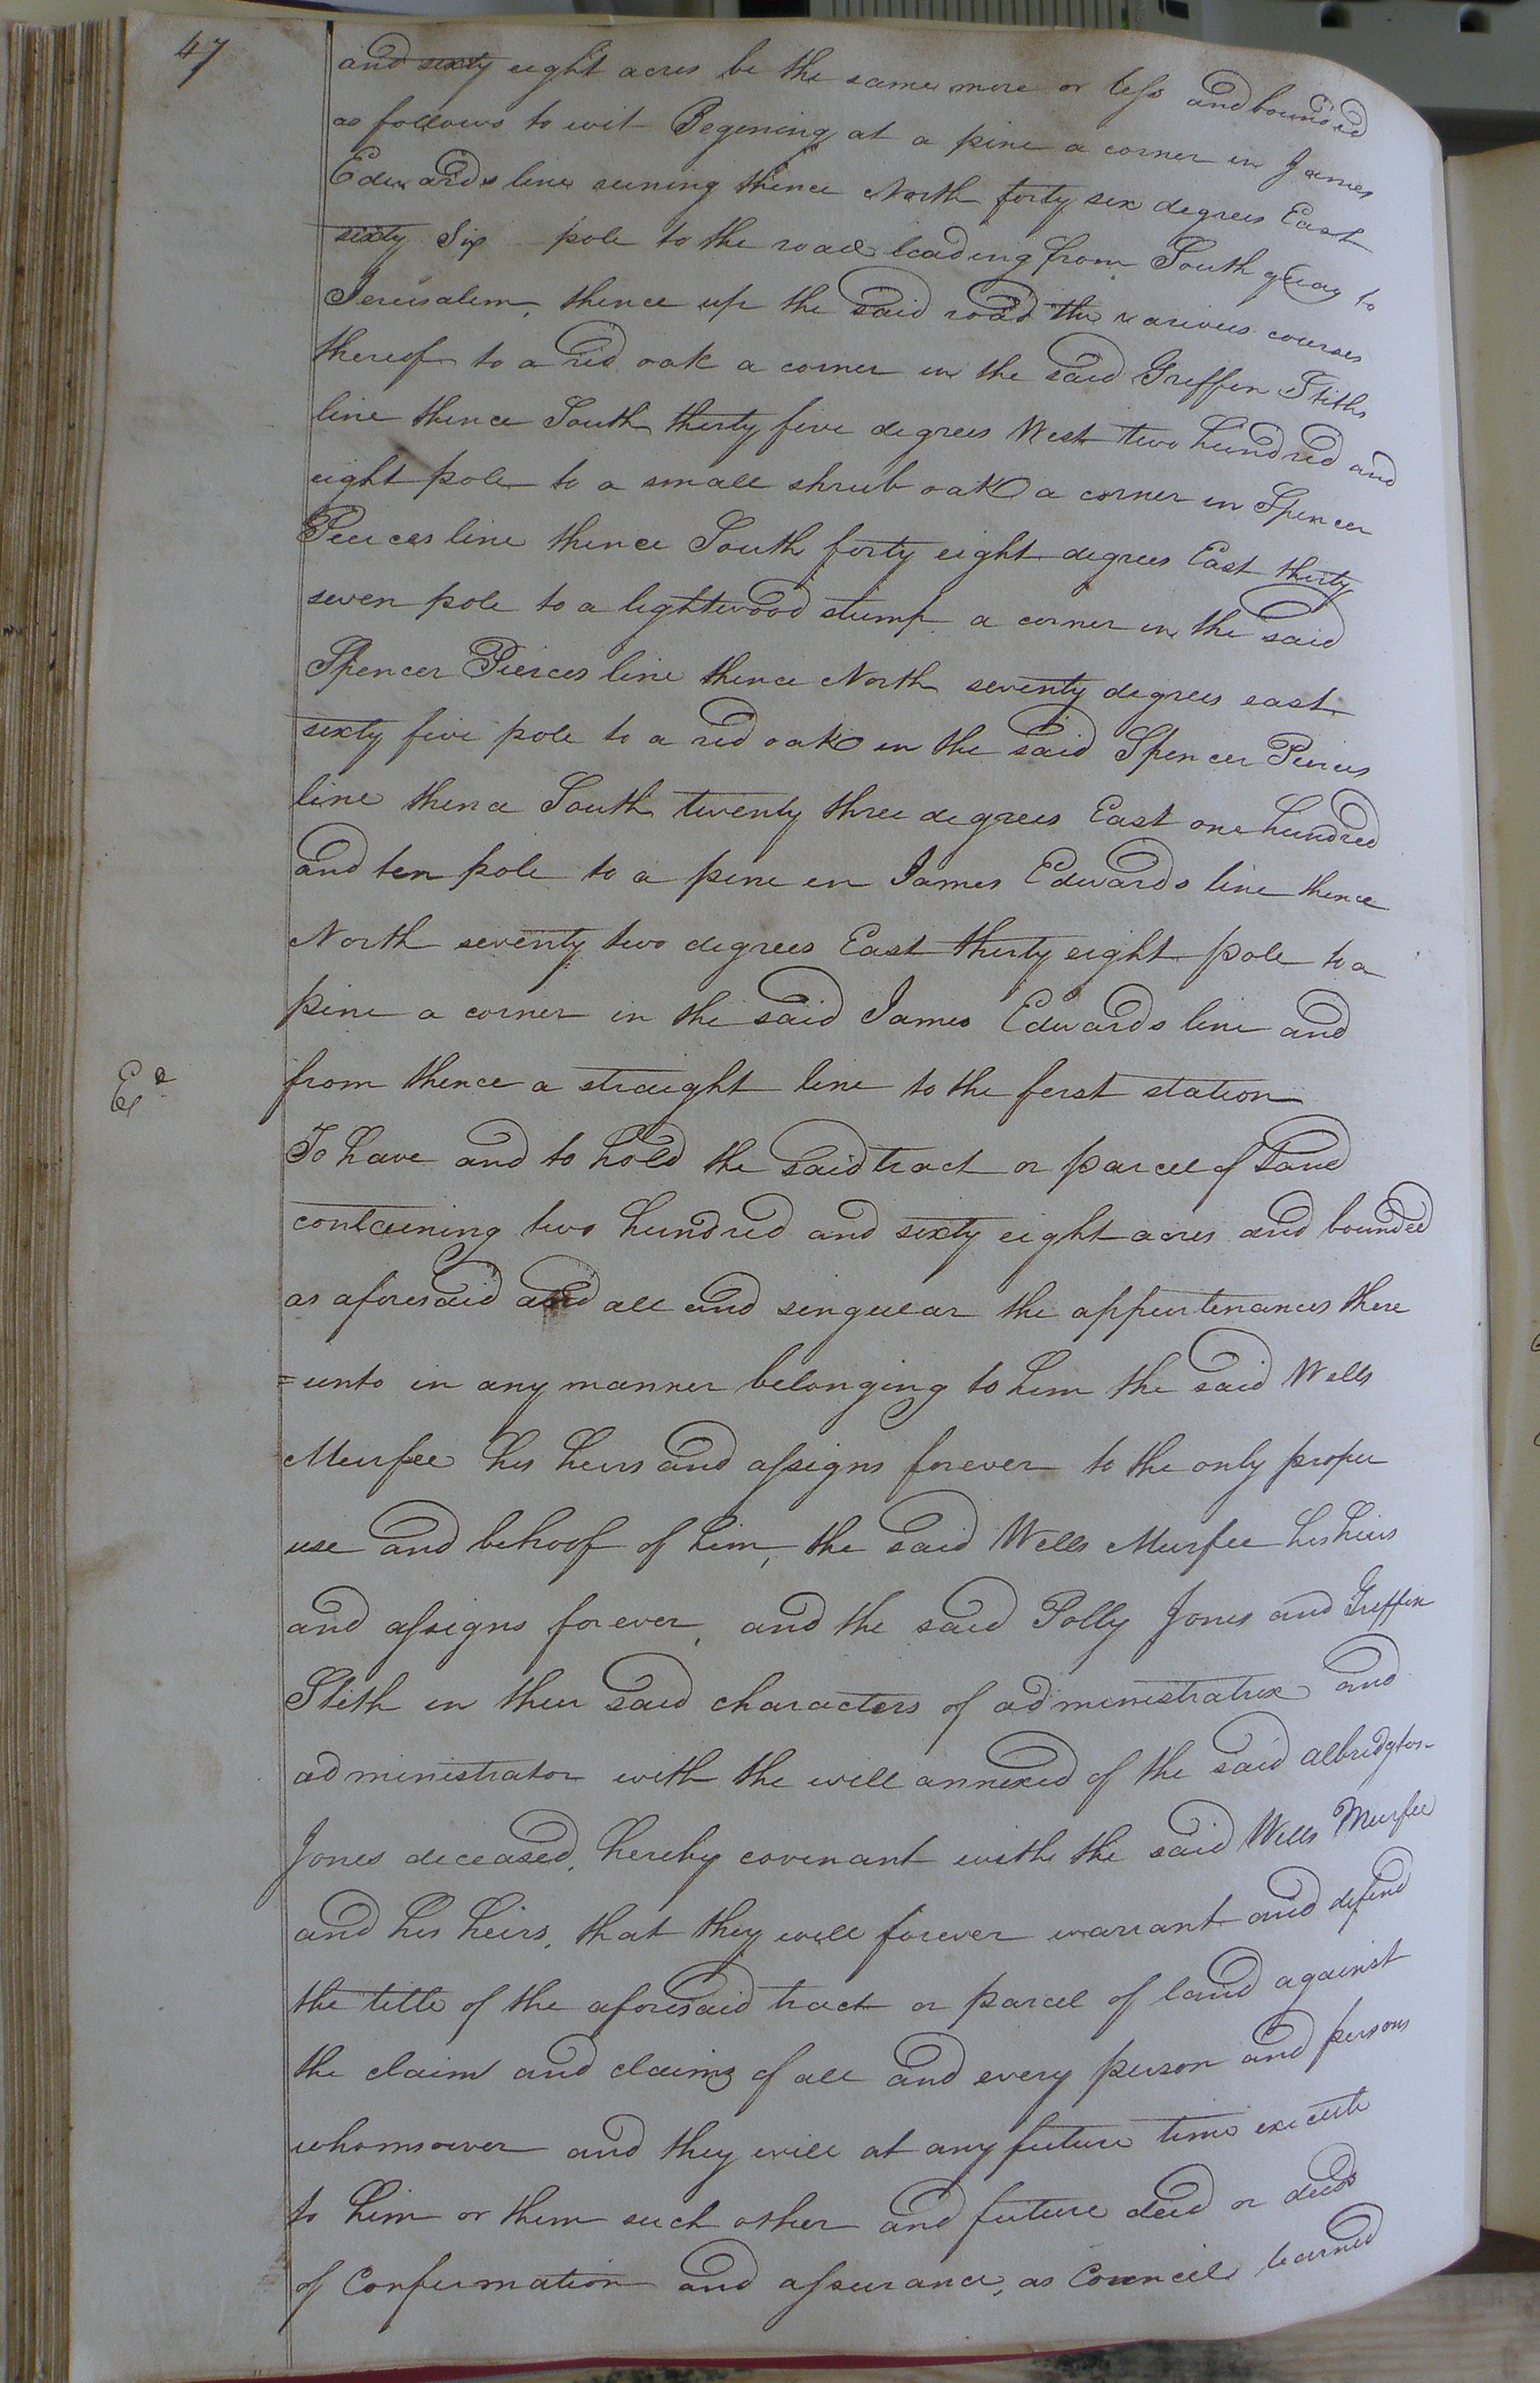 47
and sixty eight acres be the same more or less and bounded
as follows to wit Begening at a pine a corner in James
Edwards line runing thence North forty six degrees East
sixty Six pole to the road leading from South quay to
Jerusalem, thence up the said road the various courses
thereof to a red oak a corner in the said Griffin Stiths
line thence South thirty five degrees West two hundred and
eight pole to a small shrub oak a corner in Spencer
Peirces line thence South forty eight degrees East thirty
seven pole to a lightwood stump a corner in the said
Spencer Pierces line thence North seventy degrees east
sixty five pole to a red oak in the said Spencer Peirces
line thence South twenty three degrees East one hundred
and ten pole to a pine in James Edwards line thence
North seventy two degrees East thirty eight pole to a
pine a corner in the said James Edwards line and
from thence a straight line to the first station
To have and to hold the said tract or parcel of Land
containing two hundred and sixty eight acres and bounded
as aforesaid and all and singular the appurtenances there
=unto in any manner belonging to him the said Wells
Murfee his heirs and assigns forever to the only proper
use and behoof of him, the said Wells Murfee his heirs
and assigns forever, and the said Polly Jones and Griffin
Stith in their said characters of administratrix and
administrator with the will annexed of the said Albridgton
Jones deceased, hereby covenant with the said Wells Murfee
and his heirs, that they will forever warrant and defend
the title of the aforesaid tract or parcel of land against
the claim and claims of all and every person and persons
whomsoever and they will at any future time execute
to him or them such other and future deed or deeds
of Confirmation and assurance, as Council learned